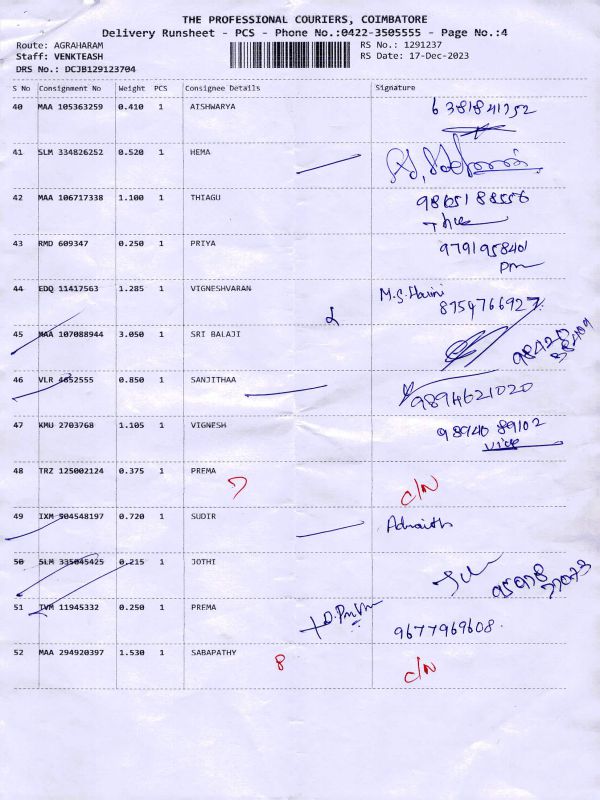 THE PROFESSIONAL COURIERS, COIMBATORE
Delivery Runsheet - PCS - Phone No.:0422-3505555 - Page No.:4
Route: AGRAHARAM RS No.: 1291237
Staff: VENKTEASH RS Date: 17-Dec-2023
DRS No.: DCJB129123704
S No Consignment No Weight PCS Consignee Details Signature
40 MAA 105363259 0.410 1 AISHWARYA 6381841752
41 SLM 334826252 0.520 1 HEMA
42 MAA 106717338 1.100 1 THIAGU 9865188556
43 RMD 609347 0.250 1 PRIYA 9791958401
44 EDQ 11417563 1.285 1 VIGNESHVARAN M.S.Harini
8754766927
45 MAA 107088944 3.050 1 SRI BALAJI
46 VLR 4652555 0.850 1 SANJITHAA 9894621020
47 KMU 2703768 1.105 1 VIGNESH 98940 89102
48 TRZ 125002124 0.375 1 PREMA 7 C/N
49 IXM 504548197 0.720 1 SUDIR
50 SLM 335045425 0.215 1 JOTHI
51 TVM 11945332 0.250 1 PREMA 9677969608.
52 MAA 294920397 1.530 1 SABAPATHY 8 C/N